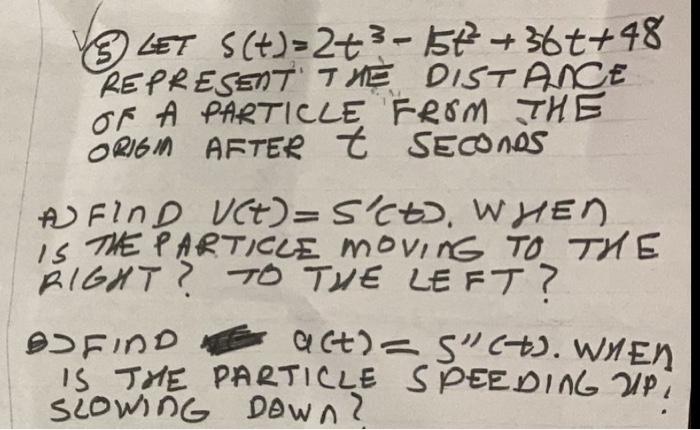 √(5) LET S(t)=2t³-15t²+36t+48
REPRESENT THE DISTANCE
OF A PARTICLE FROM THE
ORIGIN AFTER t SECONDS
A) FIND V(t)=S'(t). WHEN
IS THE PARTICLE MOVING TO THE
RIGHT? TO THE LEFT?
B) FIND a(t)=S"(t). WHEN
IS THE PARTICLE SPEEDING UP?
SLOWING DOWN?